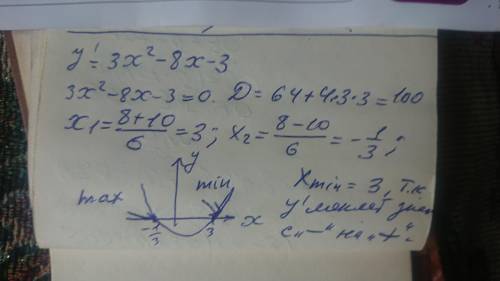 y' = 3x² - 8x - 3
3x² - 8x - 3 = 0. D = 64 + 4·3·3 = 100
x₁ = (8+10)/6 = 3; x₂ = (8-10)/6 = -1/3;
y
max
min
-1/3
3
x
Xmin = 3, т.к.
y' меняет знак
с „-" на „+".